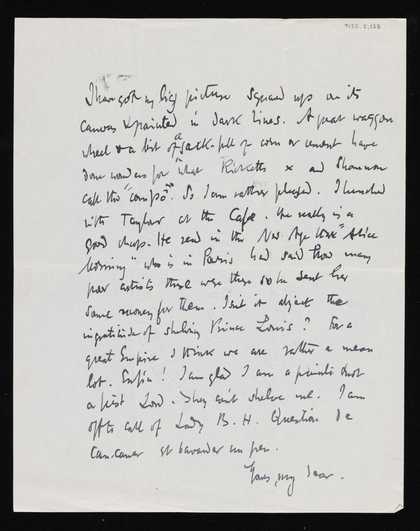 I have got my big picture squared up on its
canvas & painted in dark lines. A great waggon
wheel & a bit of a sack full of corn or cement have
done wonders for "what Ricketts x and Shannon
call the "compo". So I am rather pleased. I lunched
with Taylor at the Cafe. He really is a
good chap. He read in the New Age that "Alice
Morning" who is in Paris had said how many
poor artists there were there so he sent her
some money for them. Isn't it abject the
ingratitude of shelving Prince Louis? For a
great Empire I think we are rather a mean
lot. Enfin! I am glad I am a painter & not
a first Lord. They can't shelve me. I am
off to call of Lady B. H. Question de
can-caner et bavarder un peu.
Yours, my dear.